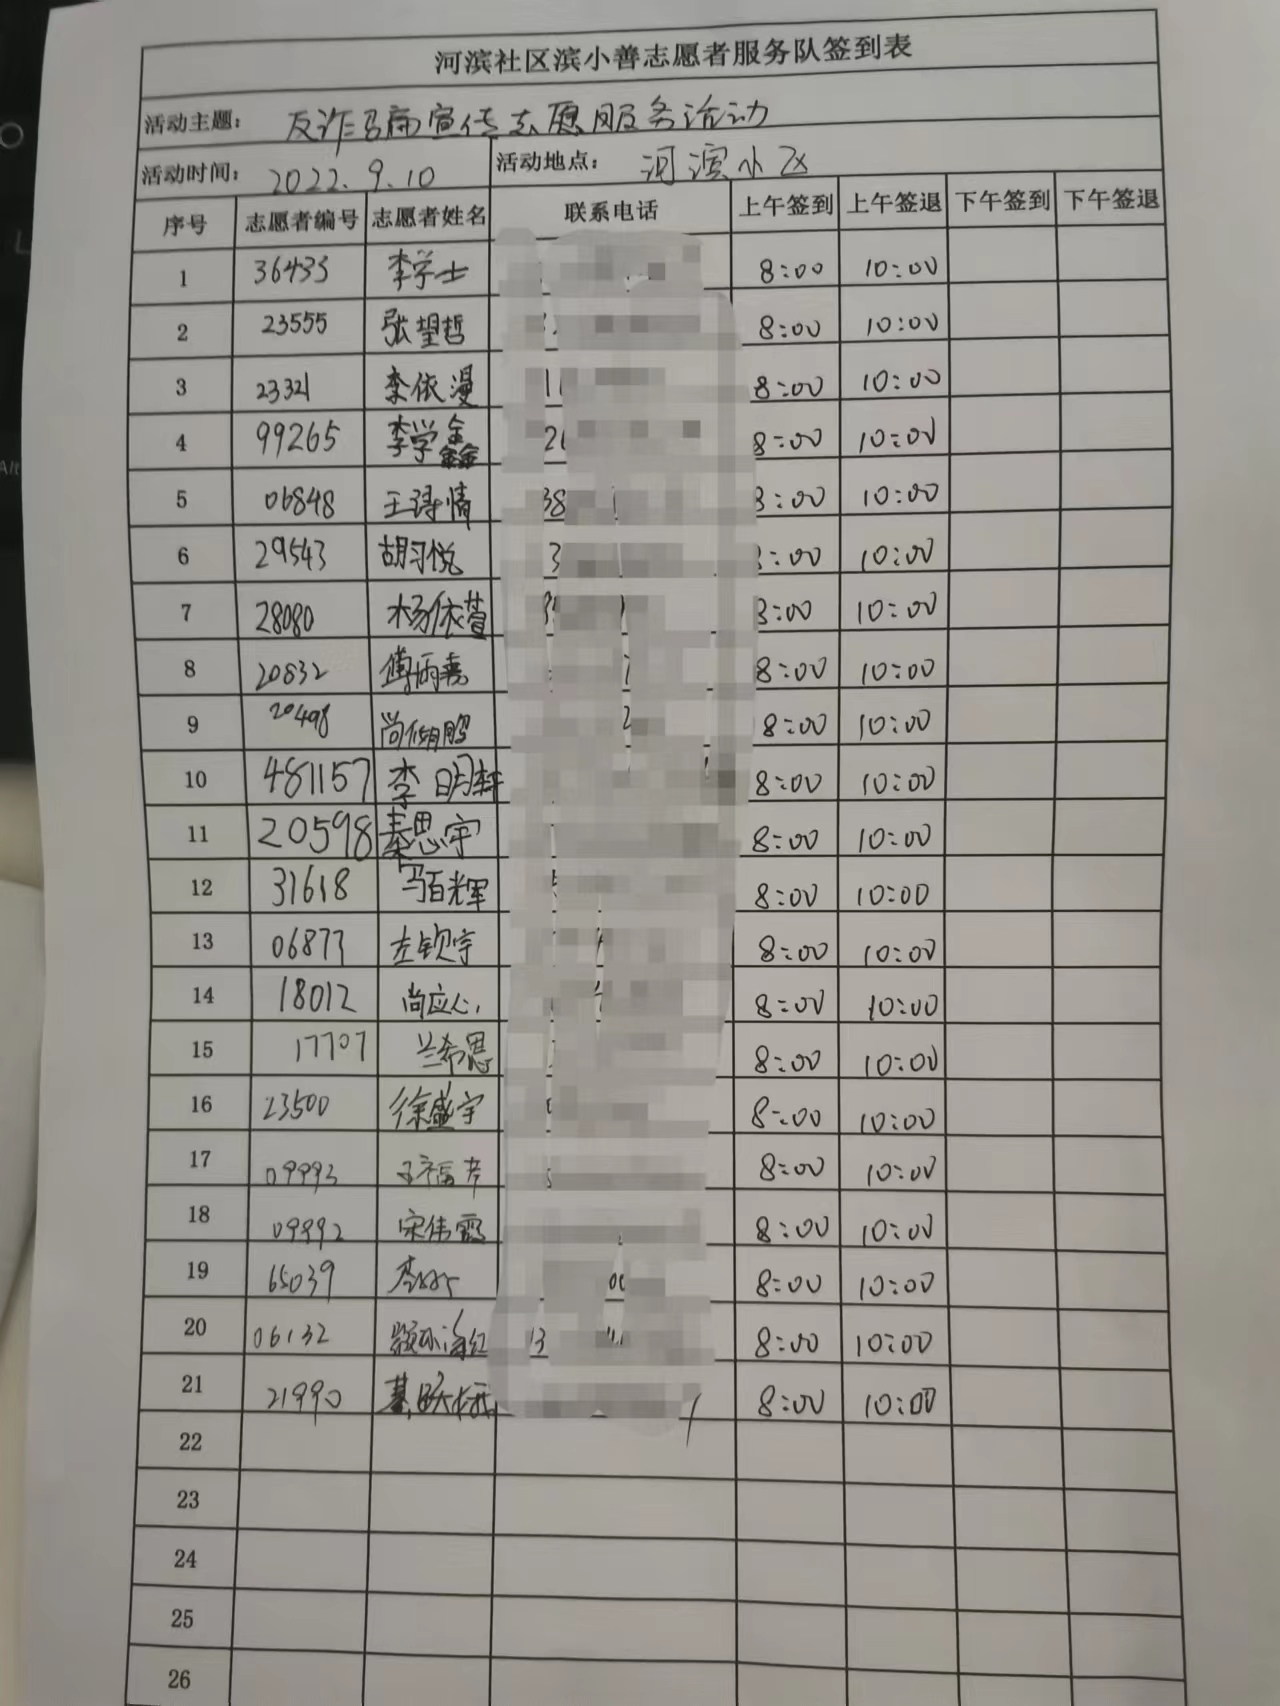 河滨社区滨小善志愿者服务队签到表
活动主题： 反诈骗宣传志愿服务活动
活动时间： 2022.9.10 活动地点： 河滨小区
序号 志愿者编号 志愿者姓名 联系电话 上午签到 上午签退 下午签到 下午签退
1 36433 李学士 8:00 10:00
2 23555 张望哲 8:00 10:00
3 23321 李依漫 8:00 10:00
4 99265 李学鑫 8:00 10:00
5 06848 王诗情 8:00 10:00
6 29543 胡习悦 8:00 10:00
7 28080 杨依萱 8:00 10:00
8 20832 傅炳熹 8:00 10:00
9 20498 8:00 10:00
10 481157 李明轩 8:00 10:00
11 20598 秦思宇 8:00 10:00
12 31618 马百辉 8:00 10:00
13 06877 左钦宇 8:00 10:00
14 18012 尚应心 8:00 10:00
15 17707 兰希恩 8:00 10:00
16 23500 徐盛宇 8:00 10:00
17 09993 8:00 10:00
18 09992 宋伟霞 8:00 10:00
19 65039 8:00 10:00
20 06132 8:00 10:00
21 21990 8:00 10:00
22
23
24
25
26